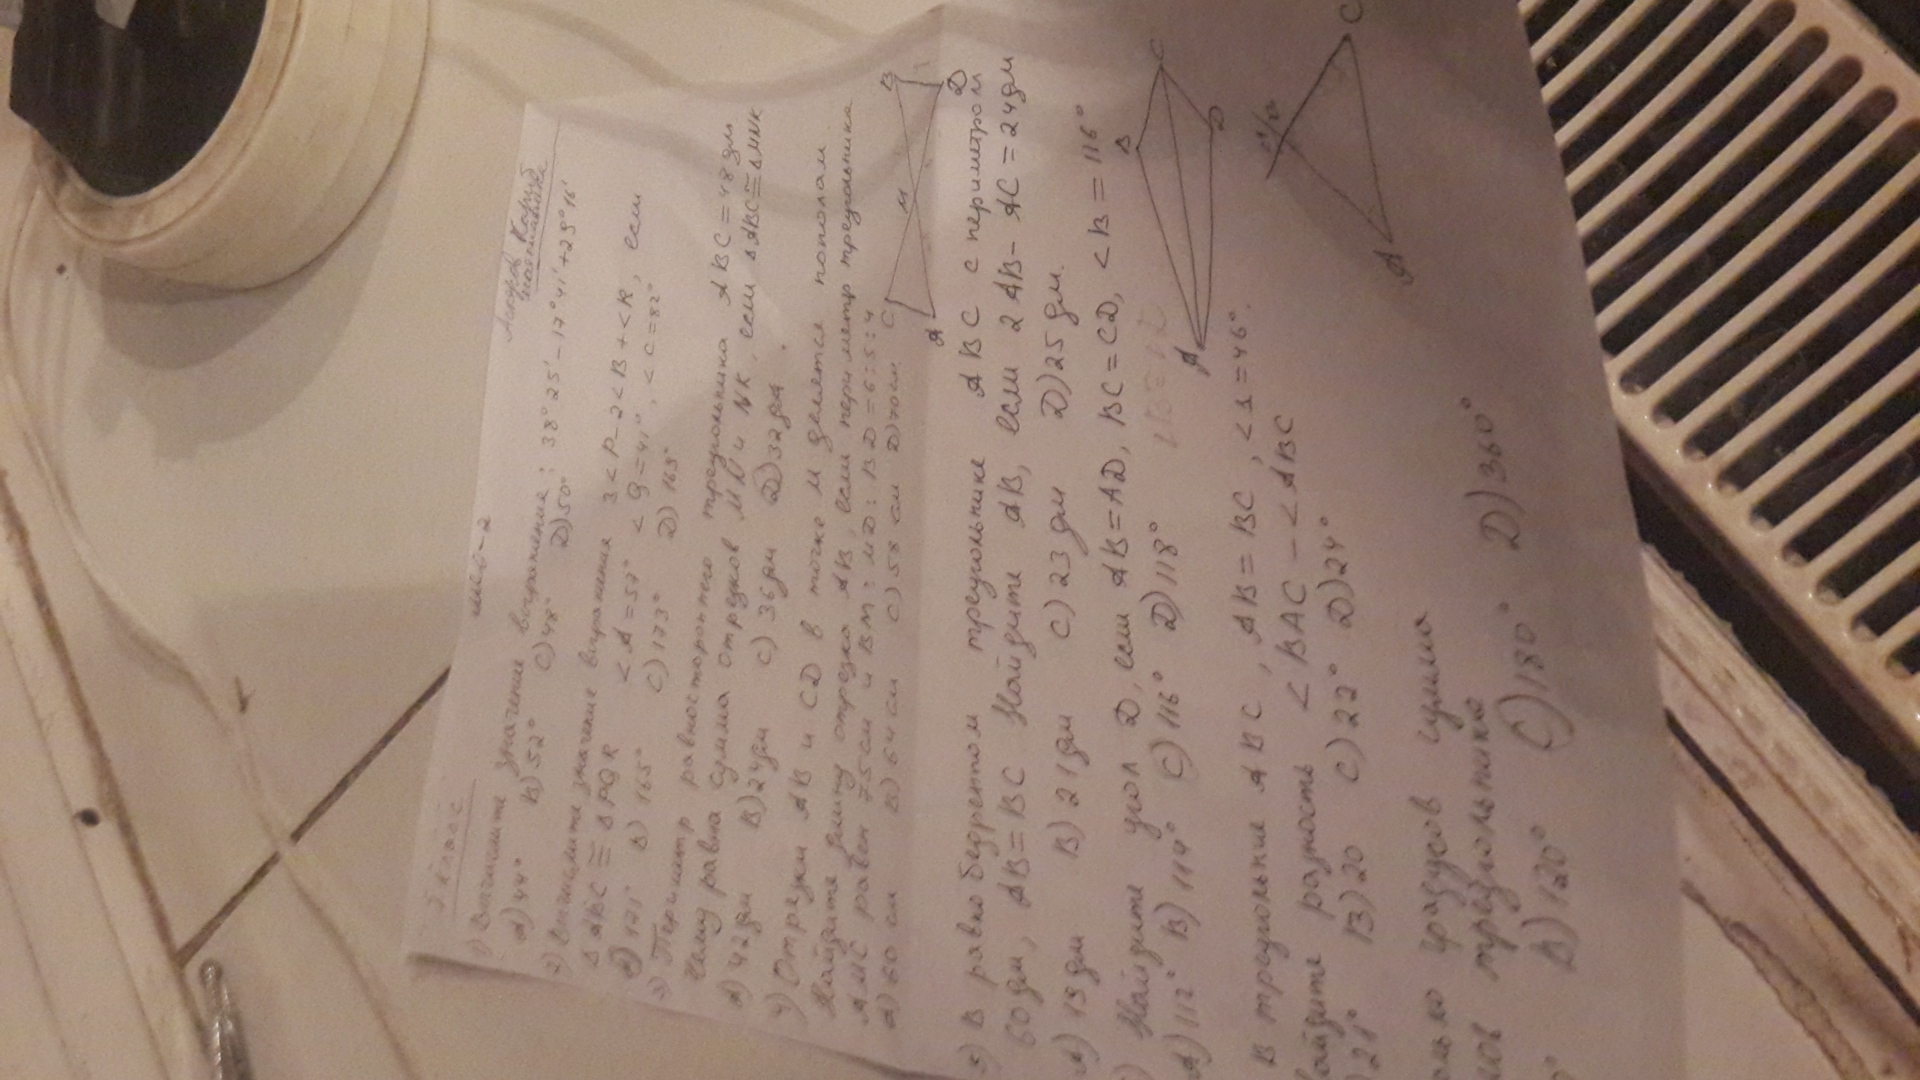 7 класс
1) Вычислите значение выражения: 38° 25' - 17° 41' + 29° 16'
A) 44° B) 52° C) 48° D) 50°
2) Вычислите значение выражения 3<P-2<B+<R, если
△ABC ≅ △PQR <A=57° <Q=41°, <C=82°
B) 165° C) 173° D) 163°
3) Периметр равностороннего треугольника ABC=48 дм
Чему равна сумма отрезков MN и NK, если △ABC≅△MNK
A) 42 дм B) 24 дм C) 36 дм D) 32 дм
4) Отрезки AB и CD в точке M делятся пополам.
Найдите длину отрезка AB, если периметр треугольника
AMC равен 75 см и BM : MD : BD = 6:5:4
A) 60 см B) 64 см C) 58 см D) 70 см
C B M A D
5) В равнобедренном треугольнике ABC с периметром
60 дм, AB=BC Найдите AB, если 2AB-AC=24 дм
A) 19 дм B) 21 дм C) 23 дм D) 25 дм.
Найдите угол D, если AB=AD, BC=CD, <B=116°
A) 112° B) 114° C) 116° D) 118°
B C A D
В треугольнике ABC, AB=BC, <1=46°.
разность <BAC-<ABC
21° B) 20 C) 22° D) 24°
A C
градусов сумма
треугольника
B) 120° C) 180° D) 360°